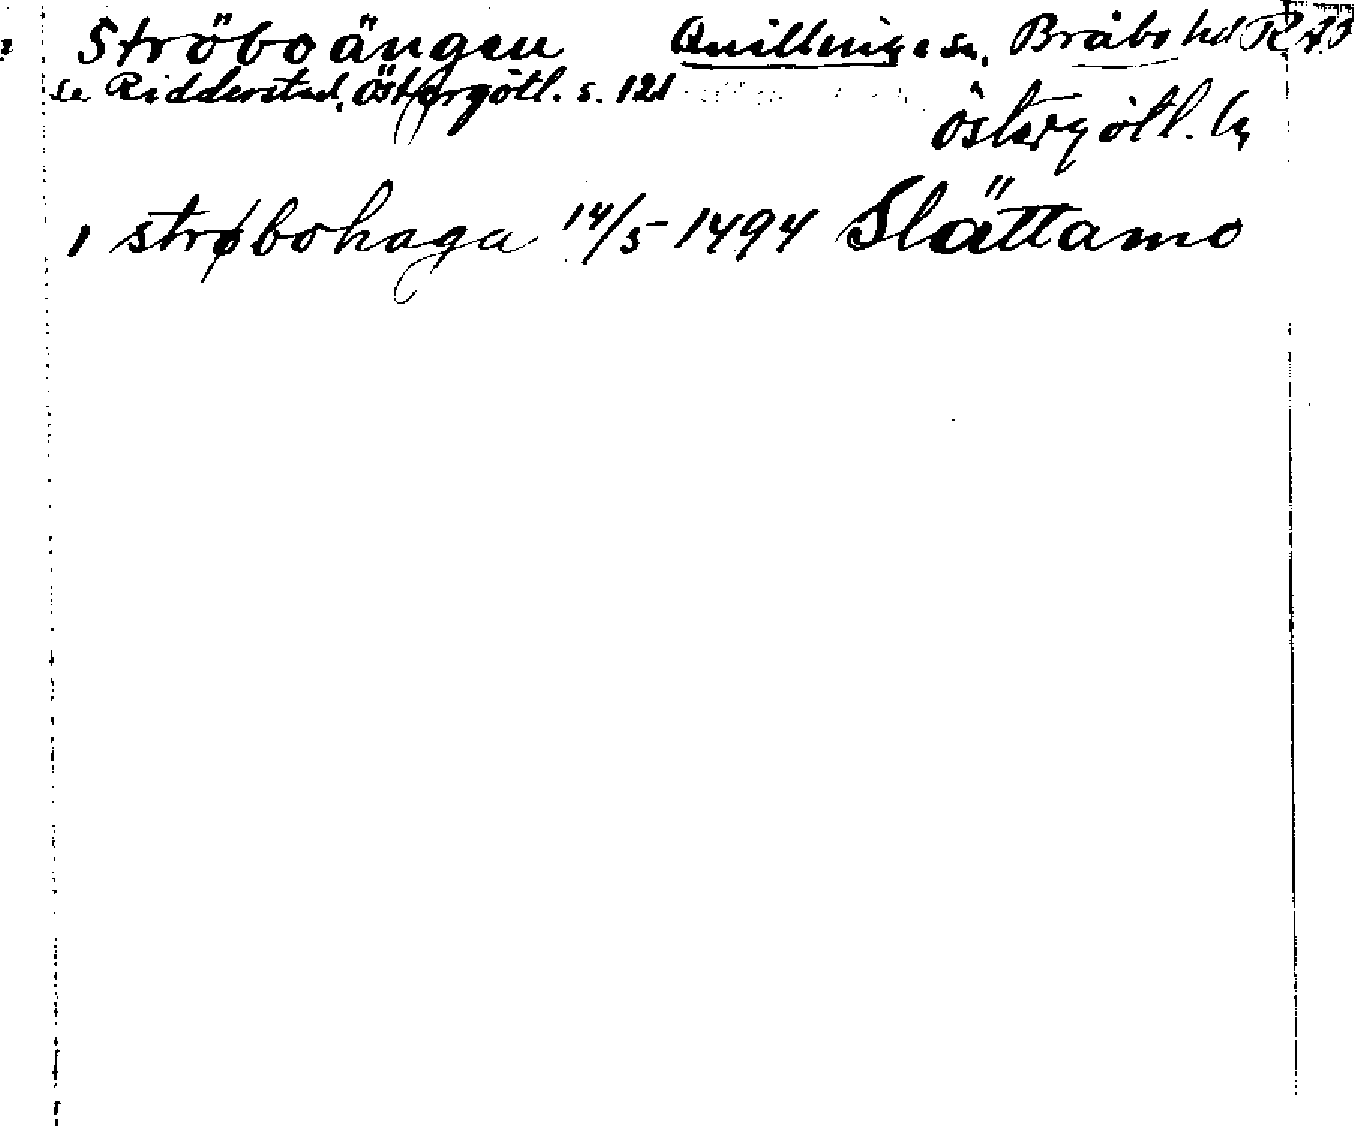 Ströboängen Qvillinge sn, Bråbo hd RAB
se Ridderstad, Östergötl. s. 121
Östergötl. ln
1 strøbohaga 14/5 1494 Slättamo